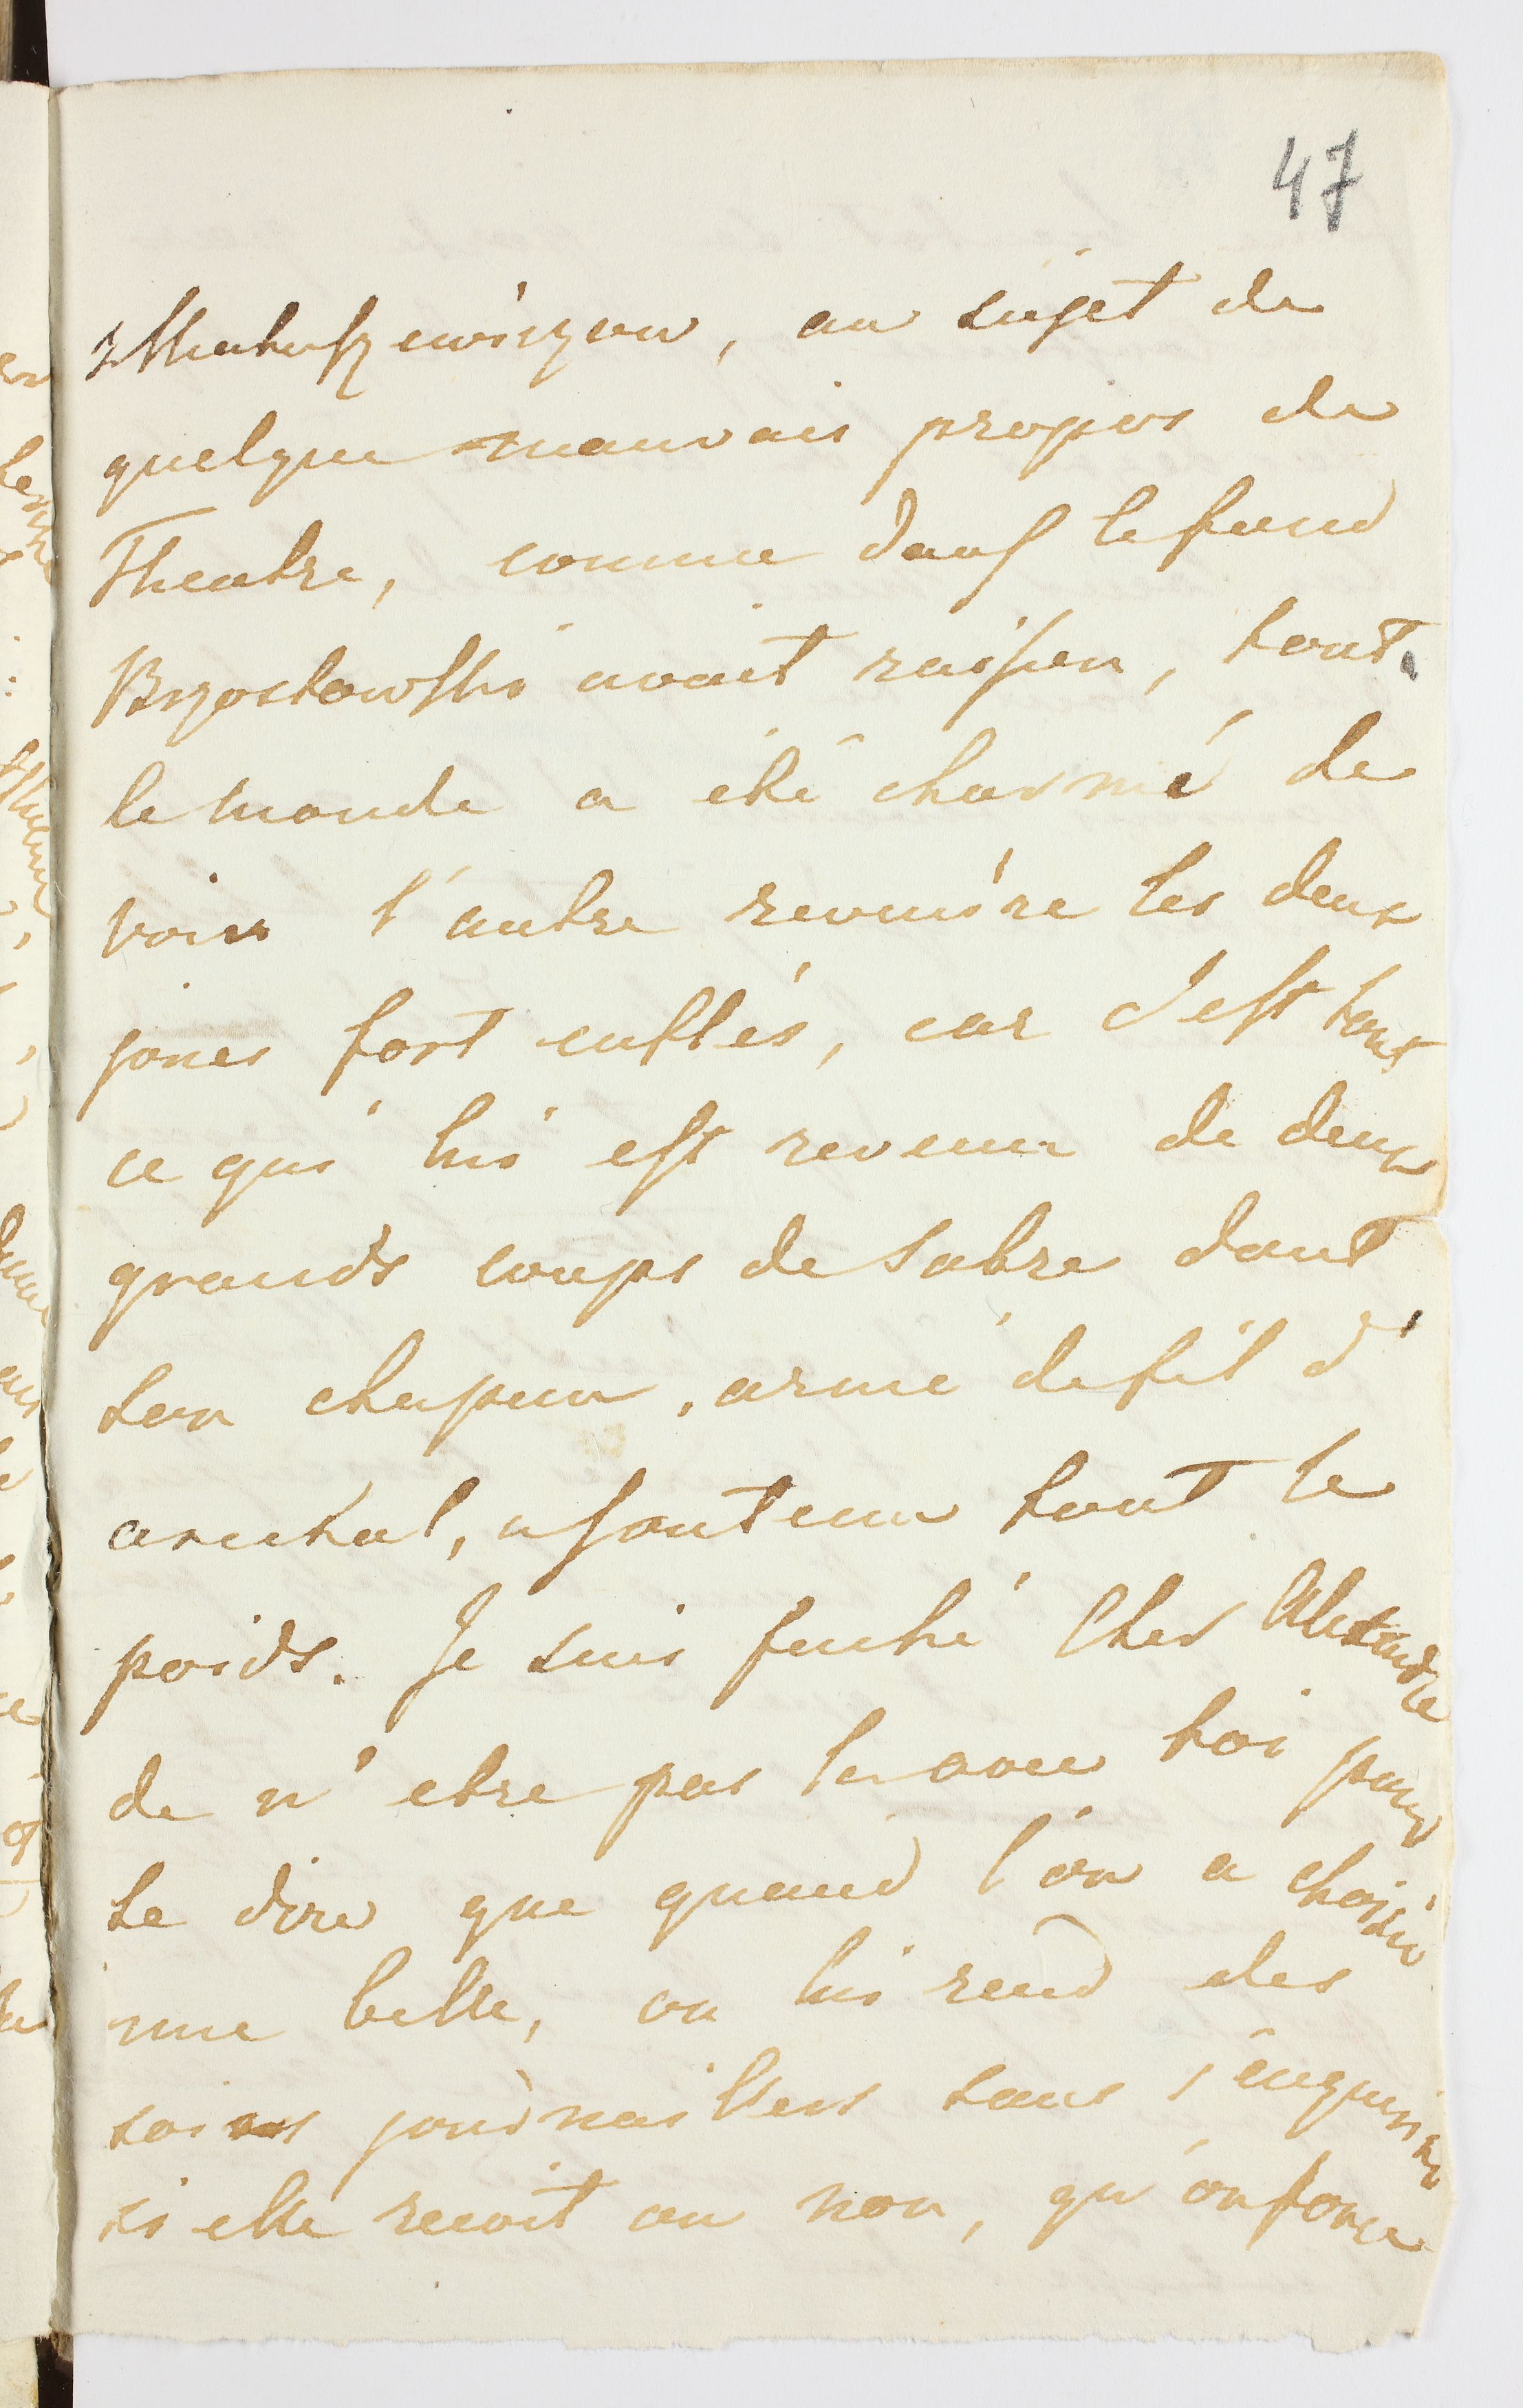 47
z Matuszewiczem, au sujet de
quelque mauvais propos de
Theatre, comme dans le fond
Brzostowski avait raison, tout
le monde a été charmé de
voir l'autre revenire les deux
joues fort enflés, car c'est tout
ce qui lui est revenu de deux
grands coups de sabre dont
son chapeau, armé de fil d'
archal, a soutenu tout le
poids. Je suis faché Cher Alexandre
de n'etre pas la avec toi pour
te dire que quand l'on a choisie
une belle, on lui rend des
soins journaillers sans s'enquerire
si elle recoit ou non, qu'on force